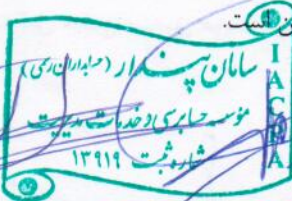 است.
سامان پندار (حسابداران رسمی)
موسسه حسابرسی و خدمات مدیریت
شماره ثبت ۱۳۹۱۹
IACPA